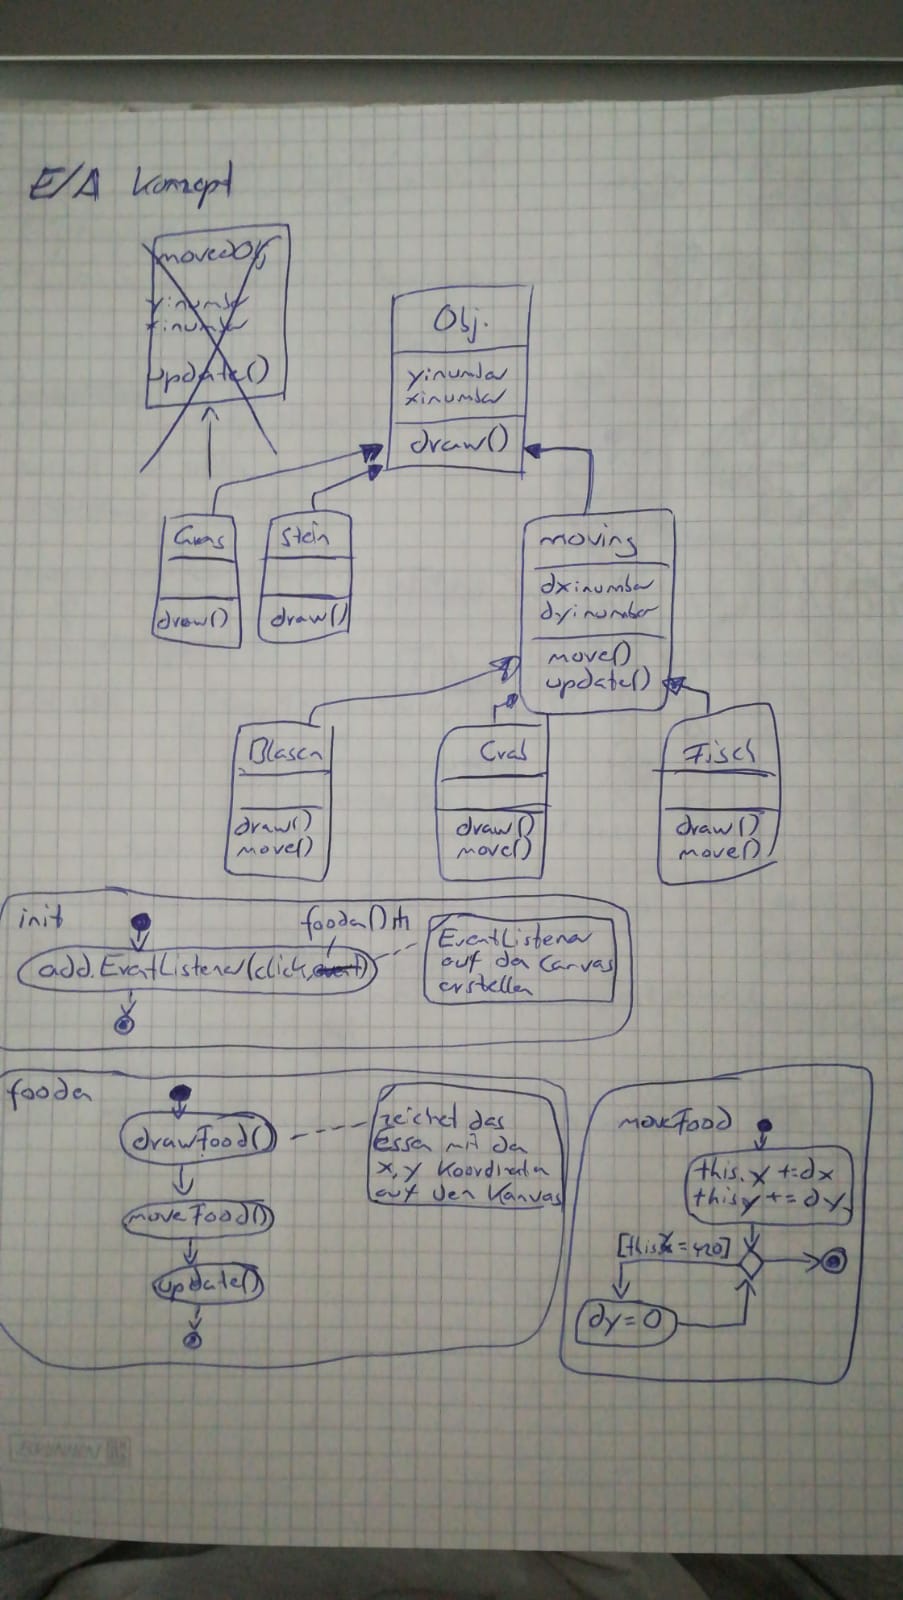 E/A Konzept
movedObj
y:number
x:number
update()
Obj.
y:number
x:number
draw()
Gras
draw()
Stein
draw()
moving
dx:number
dy:number
move()
update()
Blasen
draw()
move()
Crab
draw()
move()
Fisch
draw()
move()
init
fooda()
add.EventListener(click,event)
EventListener
auf den Canvas
erstellen
fooda
drawFood()
moveFood()
update()
zeichet das
Essen mit den
x,y Koordinaten
auf den Kanvas
moveFood
this.x += dx
this.y += dy
= 420]
dy = 0